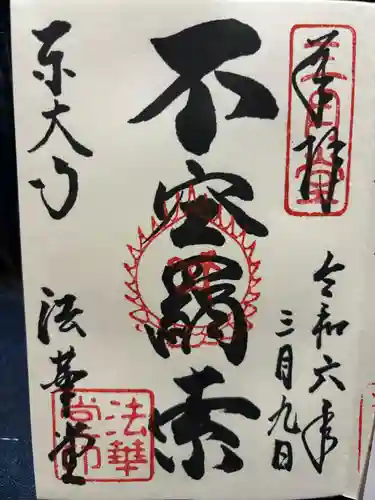 奉拝
三月堂
令和六年
三月九日
不空羂索
東大寺
法華堂
法華堂印